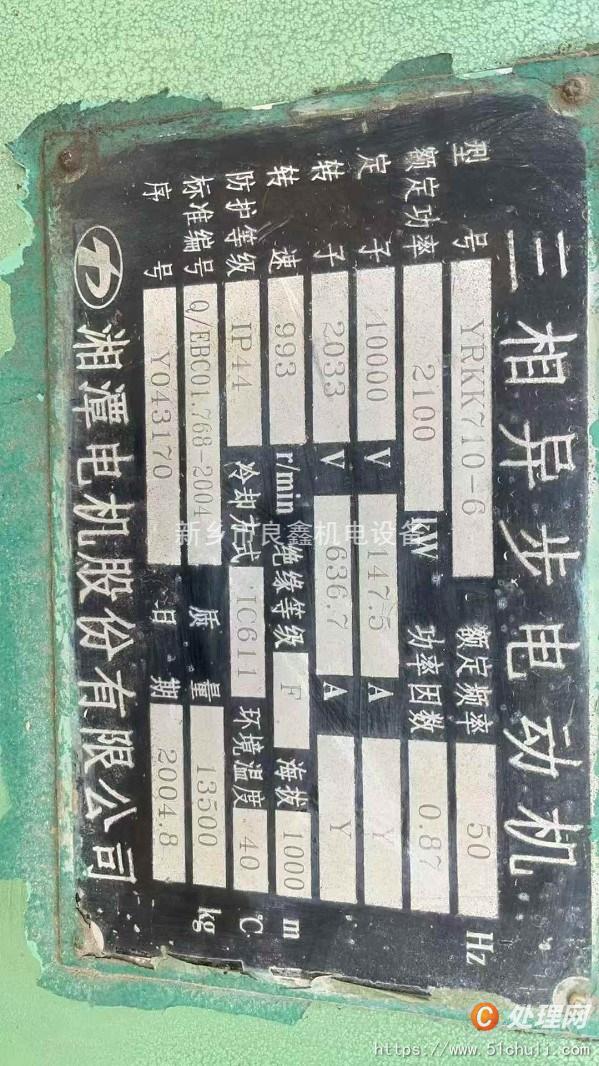 三相异步电动机
型号 YRKK710-6 额定频率 50 Hz
额定功率 2100 kW 功率因数 0.87
定子 10000 V 147.5 A Y
转子 2033 V 636.7 A Y
转速 993 r/min 绝缘等级 F 海拔 1000 m
防护等级 IP44 冷却方式 IC611 环境温度 40 ℃
标准编号 Q/EBC01.768-2004 质量 13500 kg
序号 Y043170 日期 2004.8
湘潭电机股份有限公司
新乡市良鑫机电设备
C处理网
https://www.51chuli.com